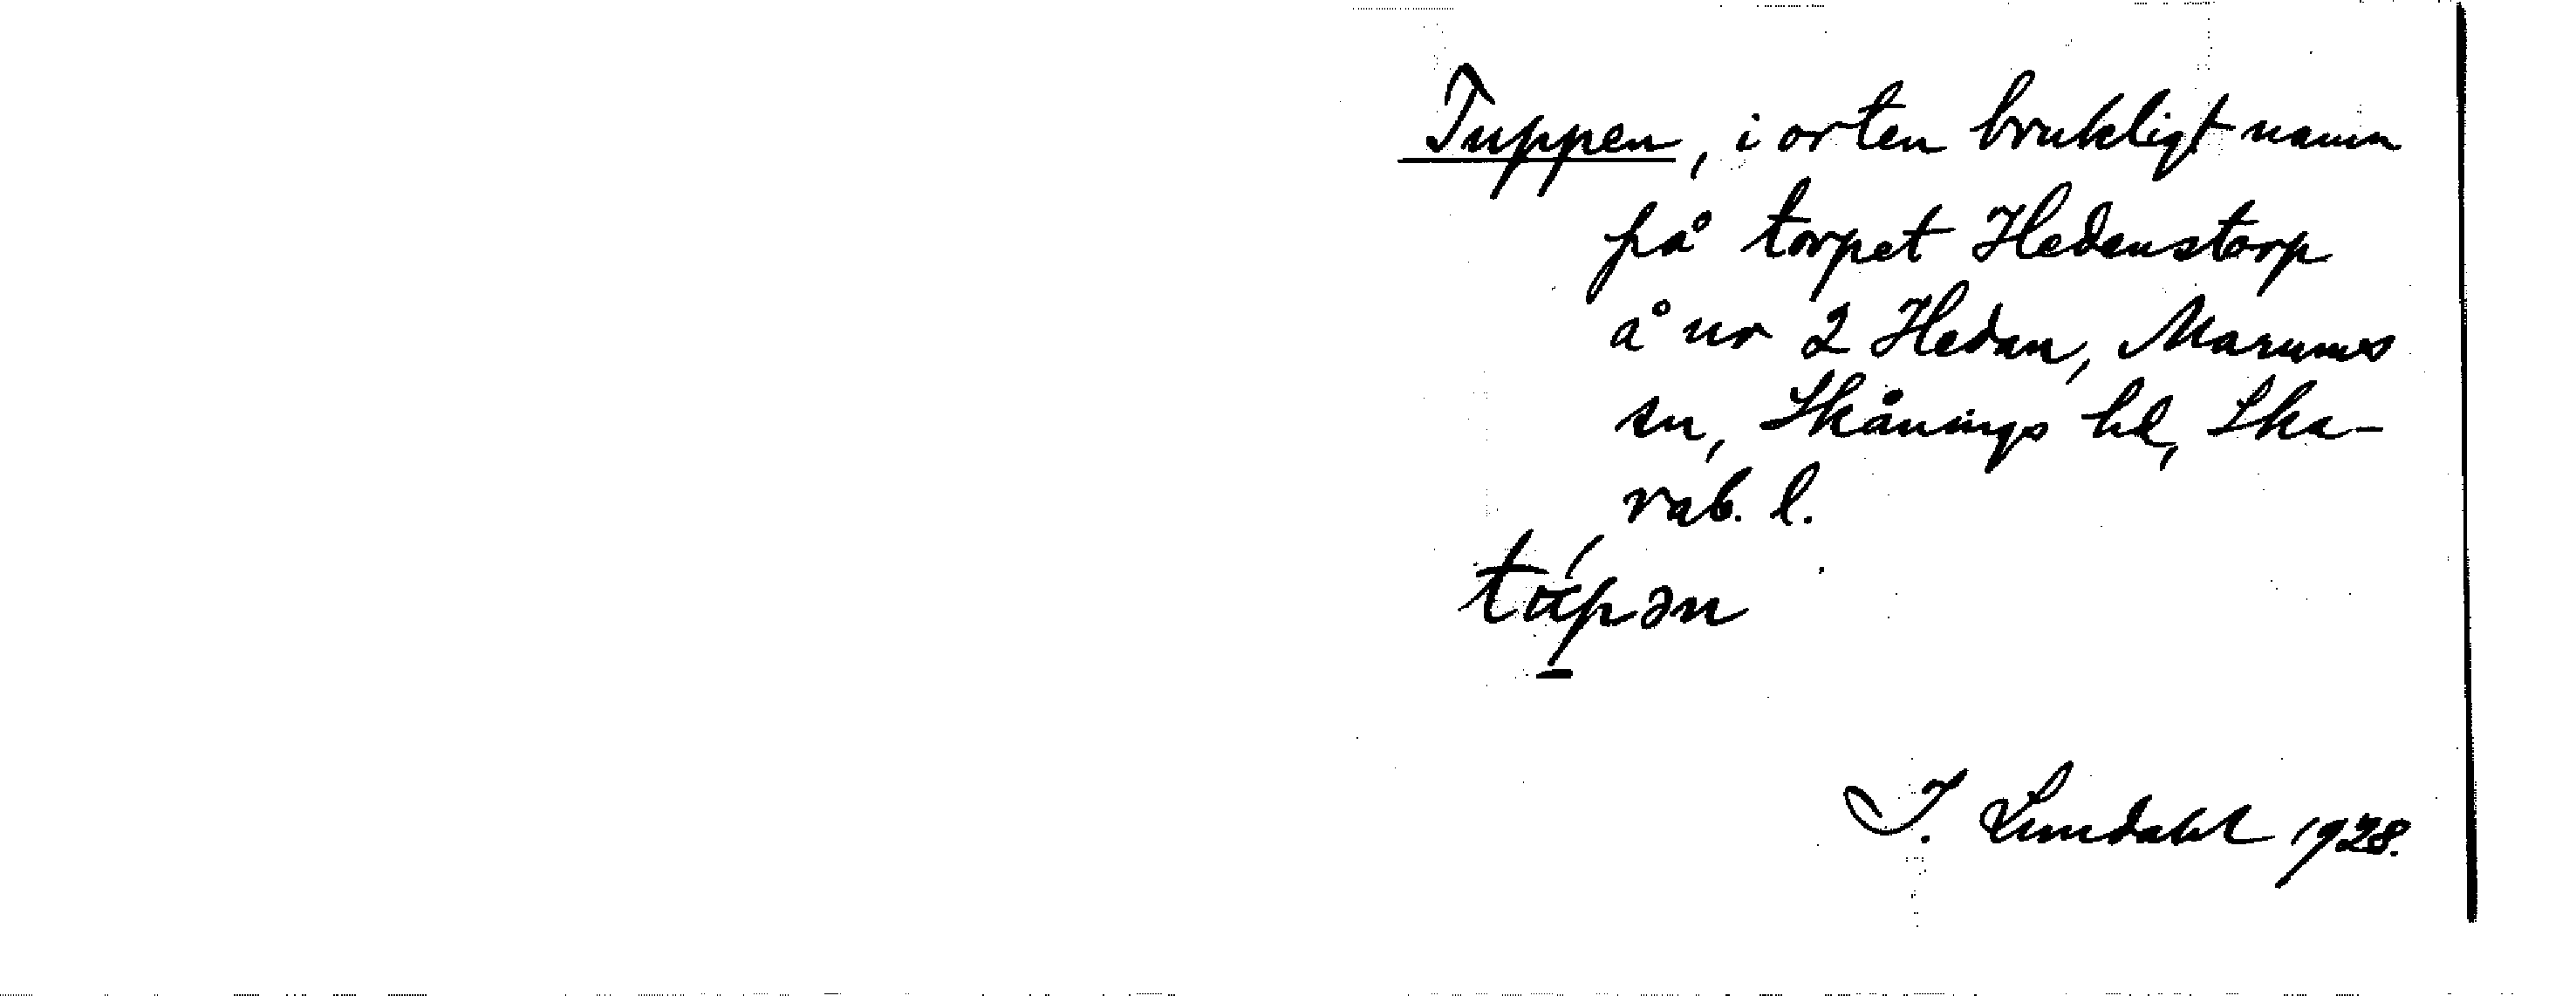 Tuppen, i orten brukligt namn
på torpet Hedenstorp
å nr 2 Hedan, Marums
sn, Skånings hd, Ska-
rab. l.
I. Lundahl 1928.